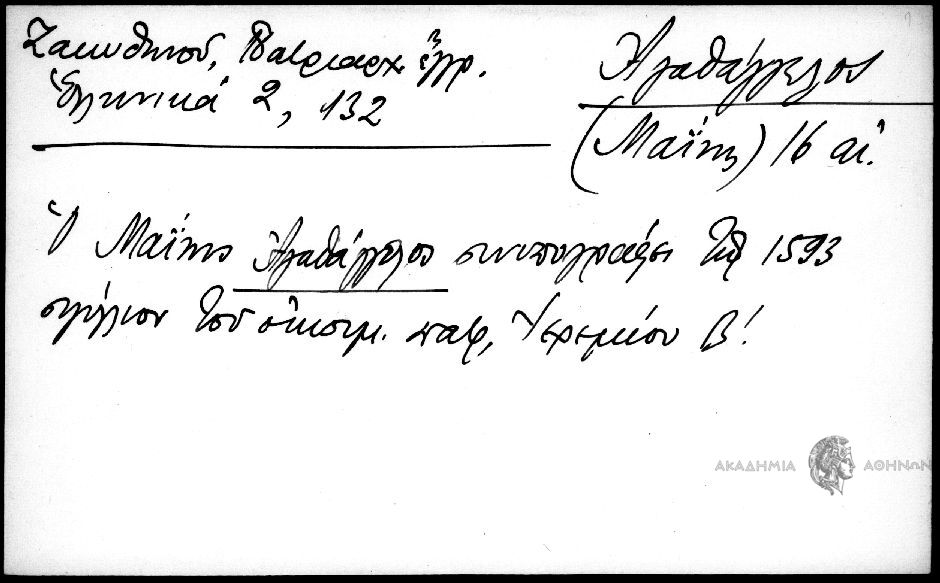 Ζακυθηνοῦ, Πατριαρχ. ἔγγρ.
Ἑλληνικά 2, 132
Ἀγαθάγγελος
(Μαΐνης) 16 αἰ.
Ὁ Μαΐνης Ἀγαθάγγελος συνυπογράφει τῷ 1593
σιγίλλιον τοῦ οἰκουμ. πατρ. Ἱερεμίου Β΄.
ΑΚΑΔΗΜΙΑ ΑΘΗΝΩΝ